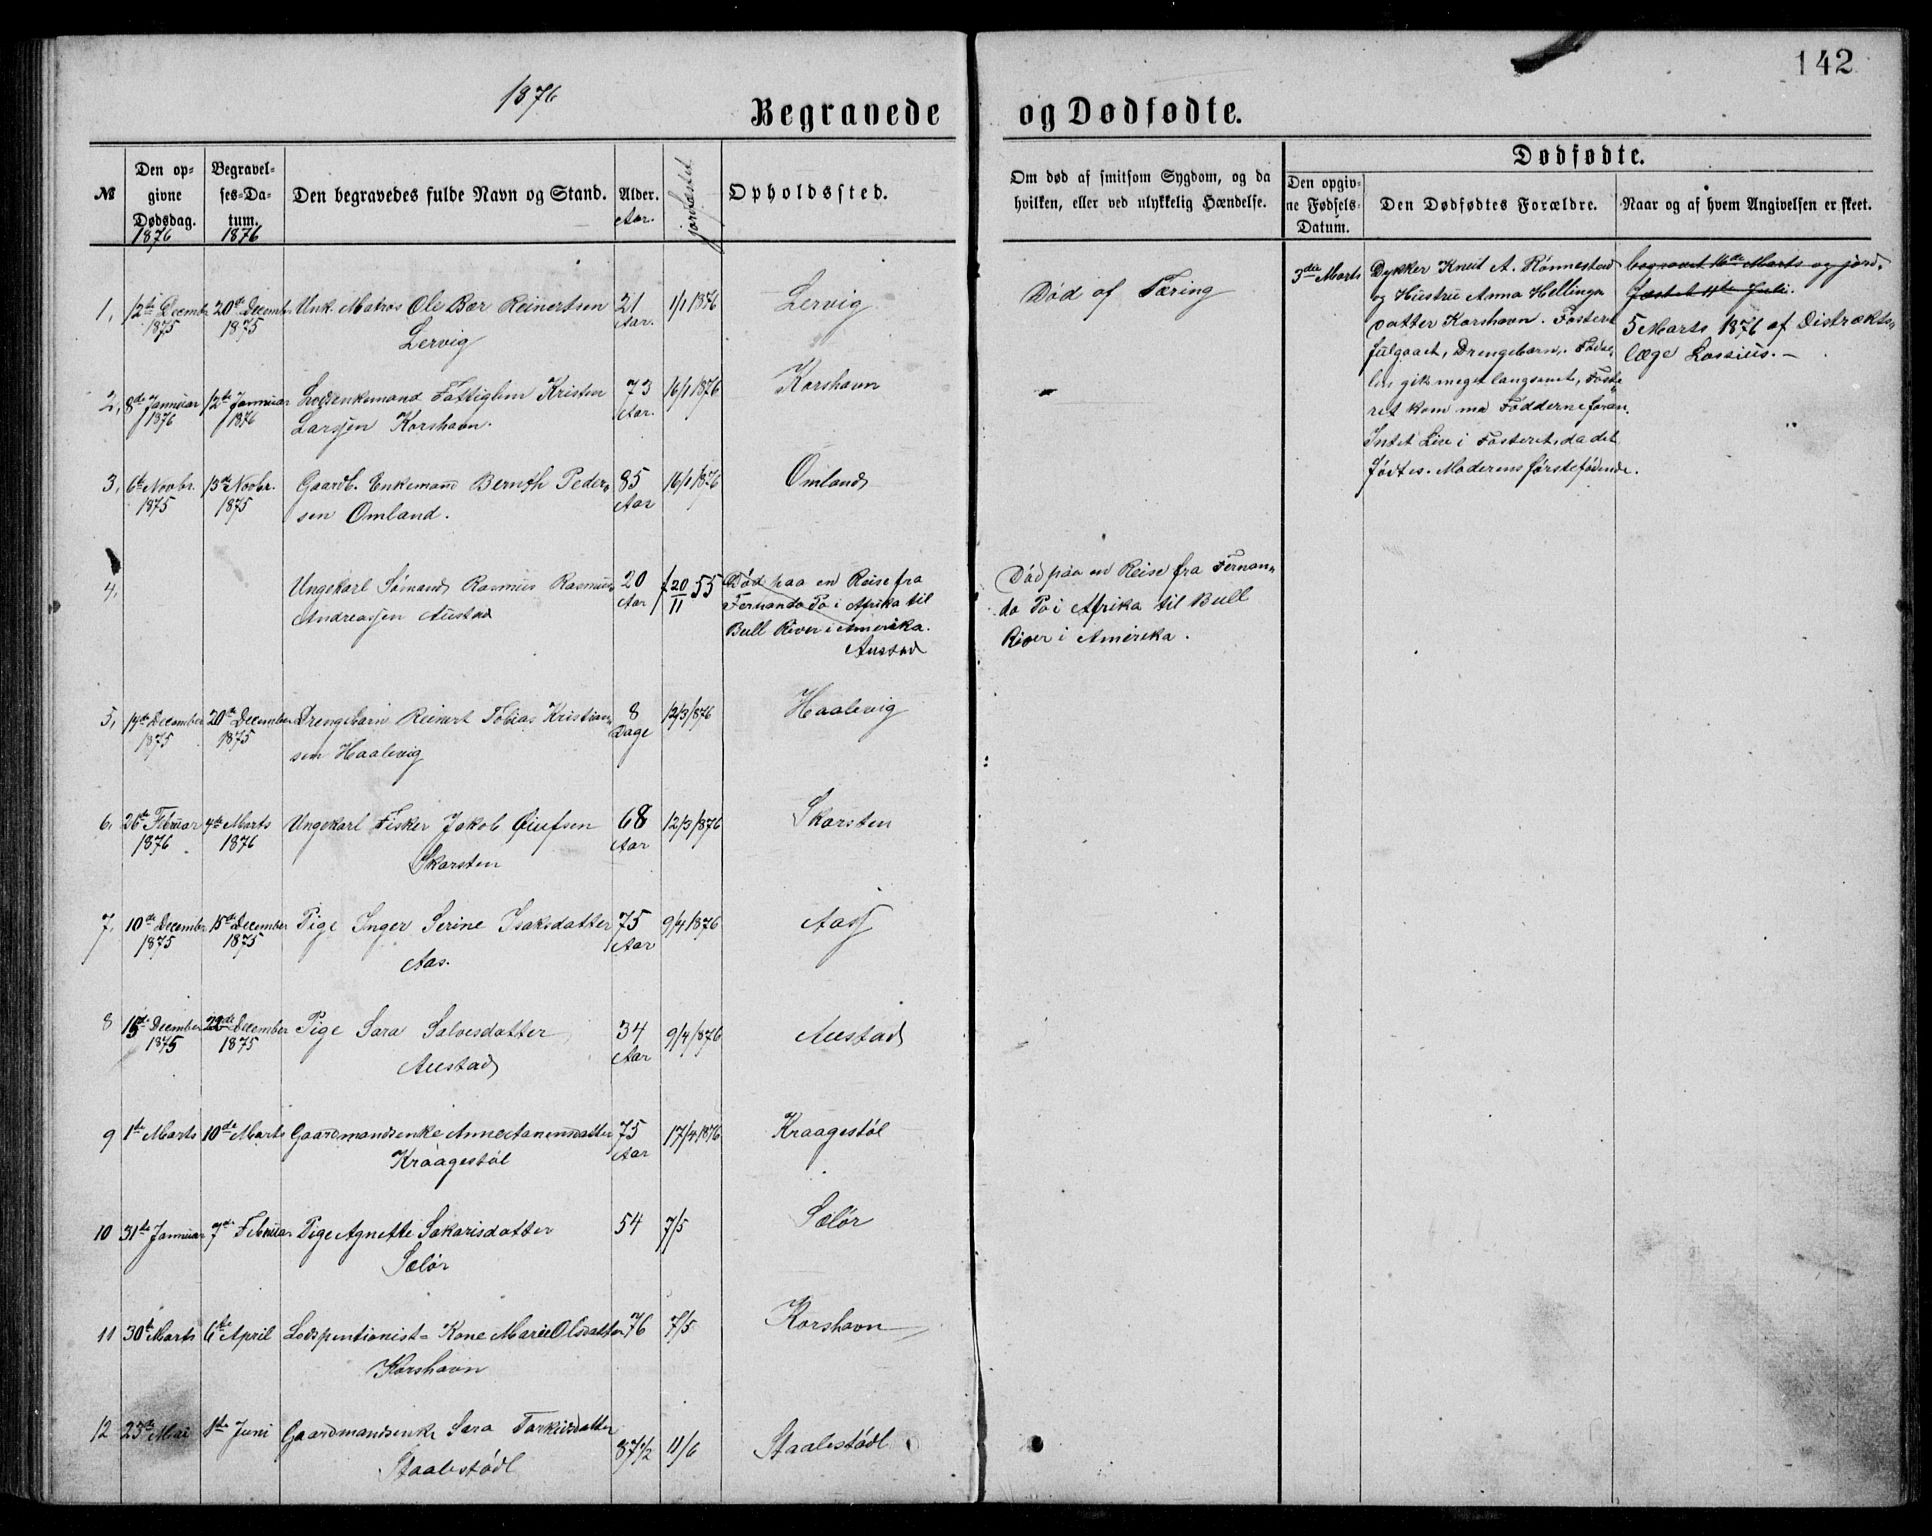 142
1876
Begravede og Dødfødte.
№
Den op-
givne
Dødsdag.
1876
Begravel-
ses-Da-
tum.
1876
Den begravedes fulde Navn og Stand.
Alder.
Aar.
jordfæstet
Opholdssted.
Om død af smitsom Sygdom, og da
hvilken, eller ved ulykkelig Hændelse.
Dødfødte.
Den opgiv-
ne Fødsels-
Datum.
Den Dødfødtes Forældre.
Naar og af hvem Angivelsen er skeet.
1, 12te Decembr 1875 20de Decembr 1875 Unk. Matros Ole Bær Reinertsen
Lervig
21 Aar. 1/1 1876 Lervig
Død af Tæring
2, 8de Januar 1876 12te Januar 1876 Lodsenkemand Fattiglem Kristen
Larssen Korshavn.
73 Aar. 16/1 1876 Korshavn
3, 6te Novbr. 1875 13de Novbr. 1875 Gaardb. Enkemand Bernth Peder-
sen Omland.
85 Aar 16/1 1876 Omland
4, Ungekarl Sømand Rasmus Rasmus
Andreassen Austad
20 Aar f 20/11 55
Død paa en Reise fra
Fernando Po i Afrika til
Bull River i Amerika.
Austad
Død paa en Reise fra Fernan-
do Po i Afrika til Bull
River i Amerika.
5, 14de December 1875 20de December 1875 Drengebarn Reinert Tobias Kristian-
sen Haalevig
8 Dage 12/3 1876 Haalevig
6, 26de Februar 1876 4de Marts 1876 Ungekarl Fisker Jakob Øiufsen
Skarsten
68 Aar 12/3 1876 Skarsten
7, 10de December 1875 15de December 1875 Pige Inger Serine Isaksdatter
Aas.
75 Aar 9/4 1876 Aas
8 15de December 1875 22de December 1875 Pige Sara Salvesdatter
Austad
34 Aar 9/4 1876 Austad
9 1ste Marts 10de Marts Gaardmandsenke Anne Aanensdatter
Kraagestøl
75 Aar 17/4 1876 Kraagestøl
10 31te Januar 7de Februar Pige Agnette Sakarisdatter
Sælør
54 7/5 Sælør
11 30te Marts 6te April Lodspentionist- Kone Marie Olsdatter
Korshavn
76 7/5 Korshavn
12 25de Mai 1ste Juni Gaardmandsenke Sara Tarkildsdatter
Staalestødl
87 1/2 11/6 Staalestødl
3die Marts Dykker Knut A. Rønnestad
og Hustru Anna Hellings-
datter Korshavn. Fosteret
fulgaaet, Drengebarn. Fødse-
len gik meget langsomt, Foste-
ret kom med Fødderne foran.
Intet Live i Fosteret, da det
fødtes. Moderens førstefødende.
begravet 16de Marts og jord-
fæstet 11te Juli.
5 Marts 1876 af Distrikts-
læge Lossius.